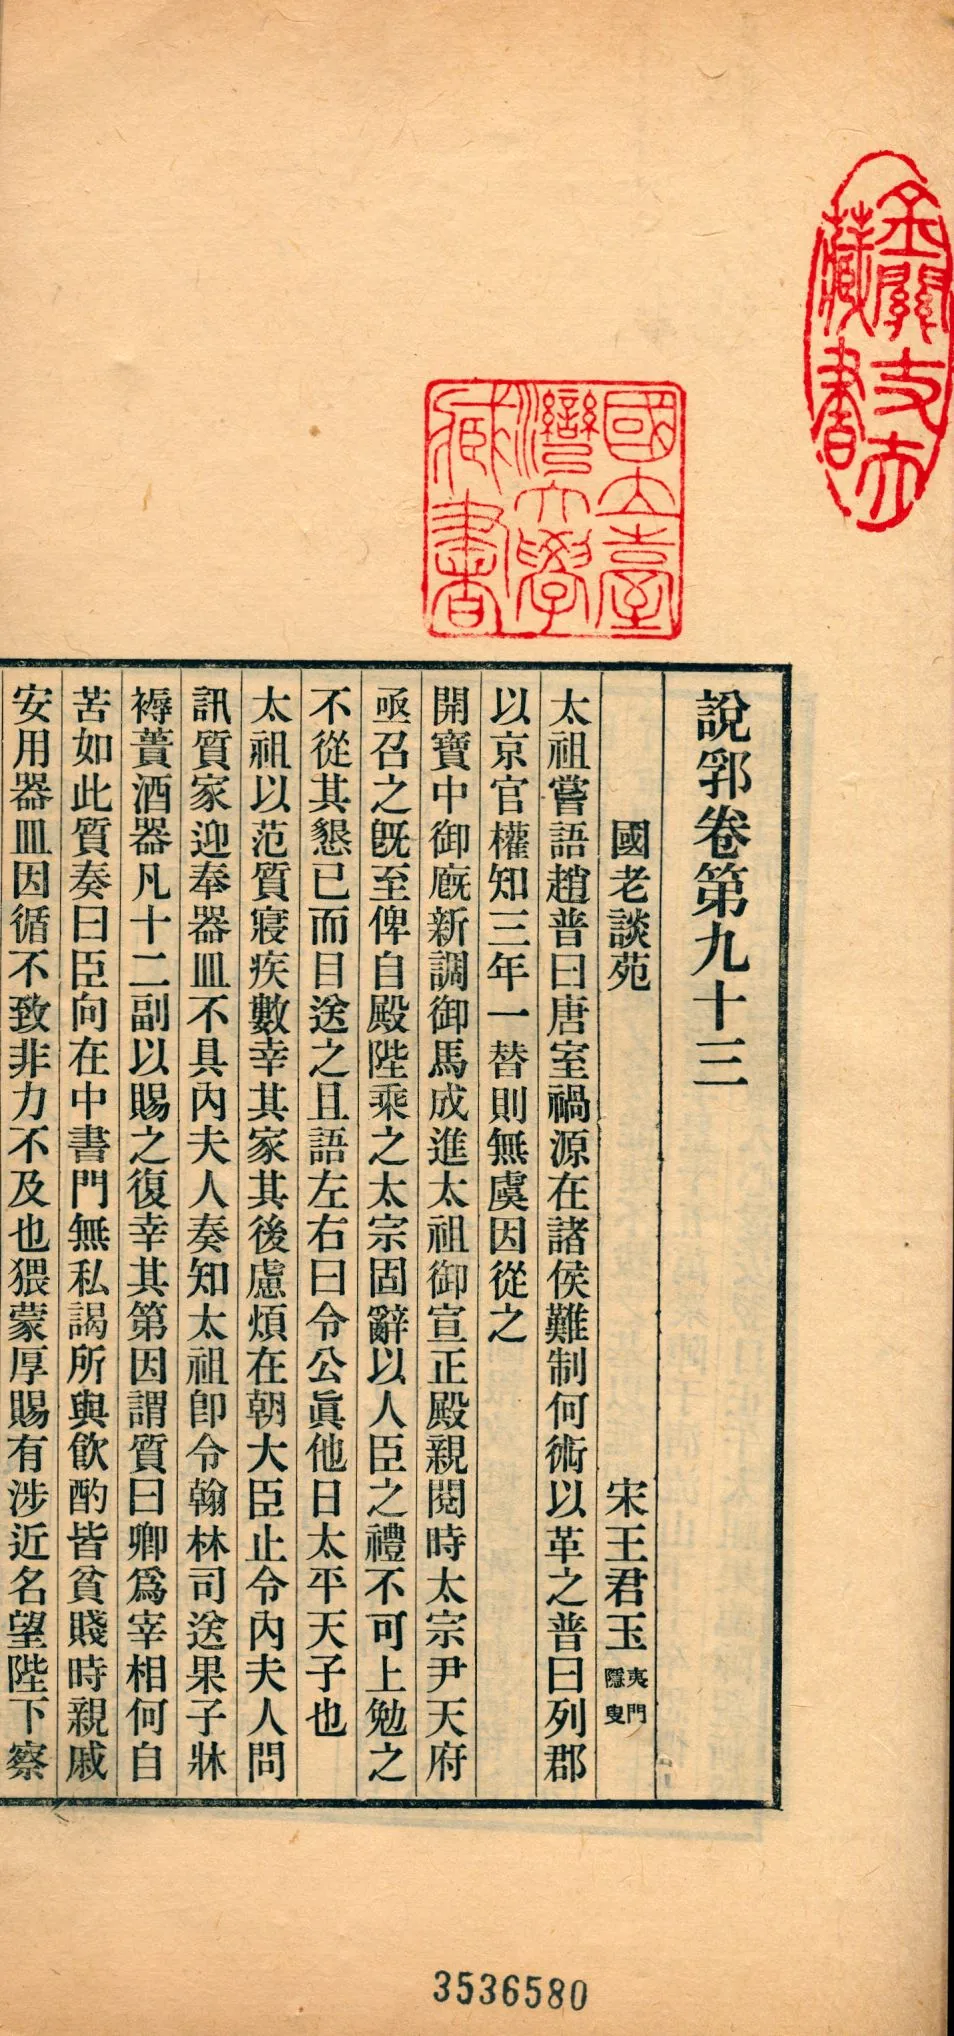 說郛卷第九十三
國老談苑 宋王君玉 夷門隱叟
太祖嘗語趙普曰唐室禍源在諸侯難制何術以革之普曰列郡
以京官權知三年一替則無虞因從之
開寶中御廄新調御馬成進太祖御宣正殿親閱時太宗尹天府
亟召之既至俾自殿陛乘之太宗固辭以人臣之禮不可上勉之
不從其懇已而目送之且語左右曰令公眞他日太平天子也
太祖以范質寢疾數幸其家其後慮煩在朝大臣止令內夫人問
訊質家迎奉器皿不具內夫人奏知太祖卽令翰林司送果子牀
褥蕢酒器凡十二副以賜之復幸其第因謂質曰卿爲宰相何自
苦如此質奏曰臣向在中書門無私謁所與飮酌皆貧賤時親戚
安用器皿因循不致非力不及也猥蒙厚賜有涉近名望陛下察
國立臺
灣大學
藏書
藏書
3536580